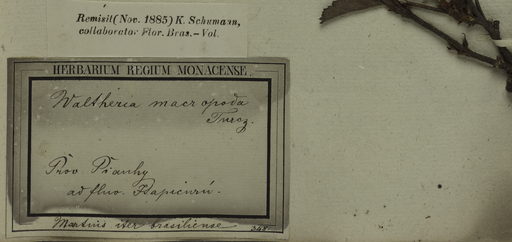 Remisit (Nov. 1885) K. Schumann,
collaborator Flor. Bras.-Vol.
HERBARIUM REGIUM MONACENSE.
Waltheria macropoda
Turcz.
Prov Piauhy
ad fluv. Itapicurú.
Martius iter brasiliense